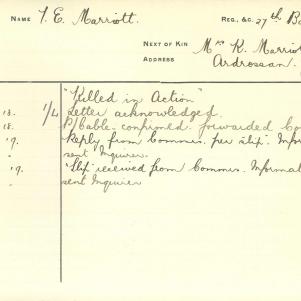 NAME T. E. Marriott. REG., &C. 27th Ba
NEXT OF KIN Mrs K. Marriot
ADDRESS Ardrossan.
"Killed in Action"
18. 1/4 Letter acknowledged.
18. P/Cable. confirmed. forwarded Co
19. Reply from Commis. per slip". Infor
" sent Inquirer.
19. "Slip" received from Commis. Informat
" sent Inquirer